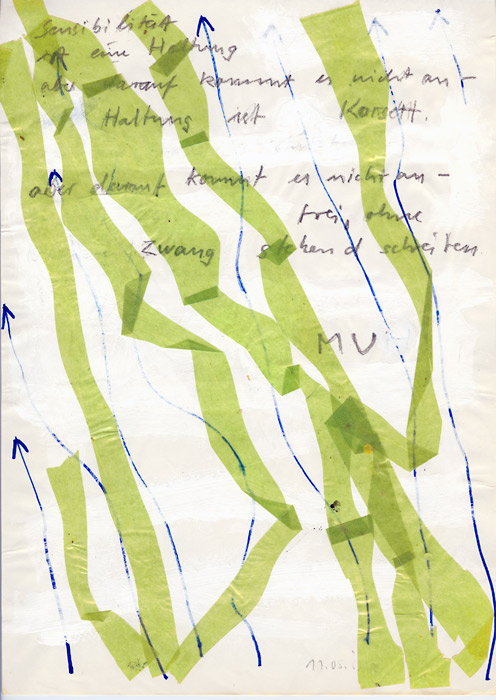 Sensibilität
ist eine Haltung
aber darauf kommt es nicht an –
Haltung ist Korsett.
aber darauf kommt es nicht an –
frei, ohne
Zwang stehend schreiten
MU
11.05.